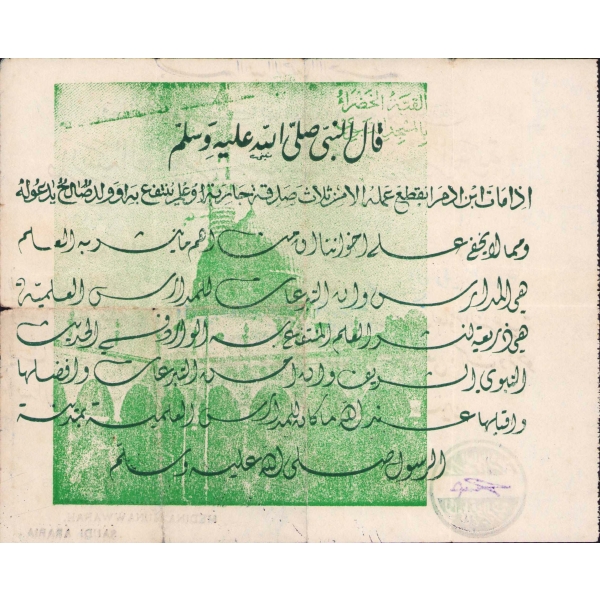 القبة الخضراء
قال النبي صلى الله عليه وسلم
اذا مات ابن ادم انقطع عمله الا من ثلاث صدقة جارية او علم ينتفع به او ولد صالح يدعو له
ومما لا يخفى على اخواننا ان من اهم ما ينشر به العلم
هي المدارس وان التبرعات للمدارس العلمية
هي ذريعة لنشر العلم المنتفع به الوارد في الحديث
النبوي الشريف وان احسن التبرعات وافضلها
واقبلها عند الله ما كان للمدارس العلمية بمدينة
الرسول صلى الله عليه وسلم
SAUDI ARABIA